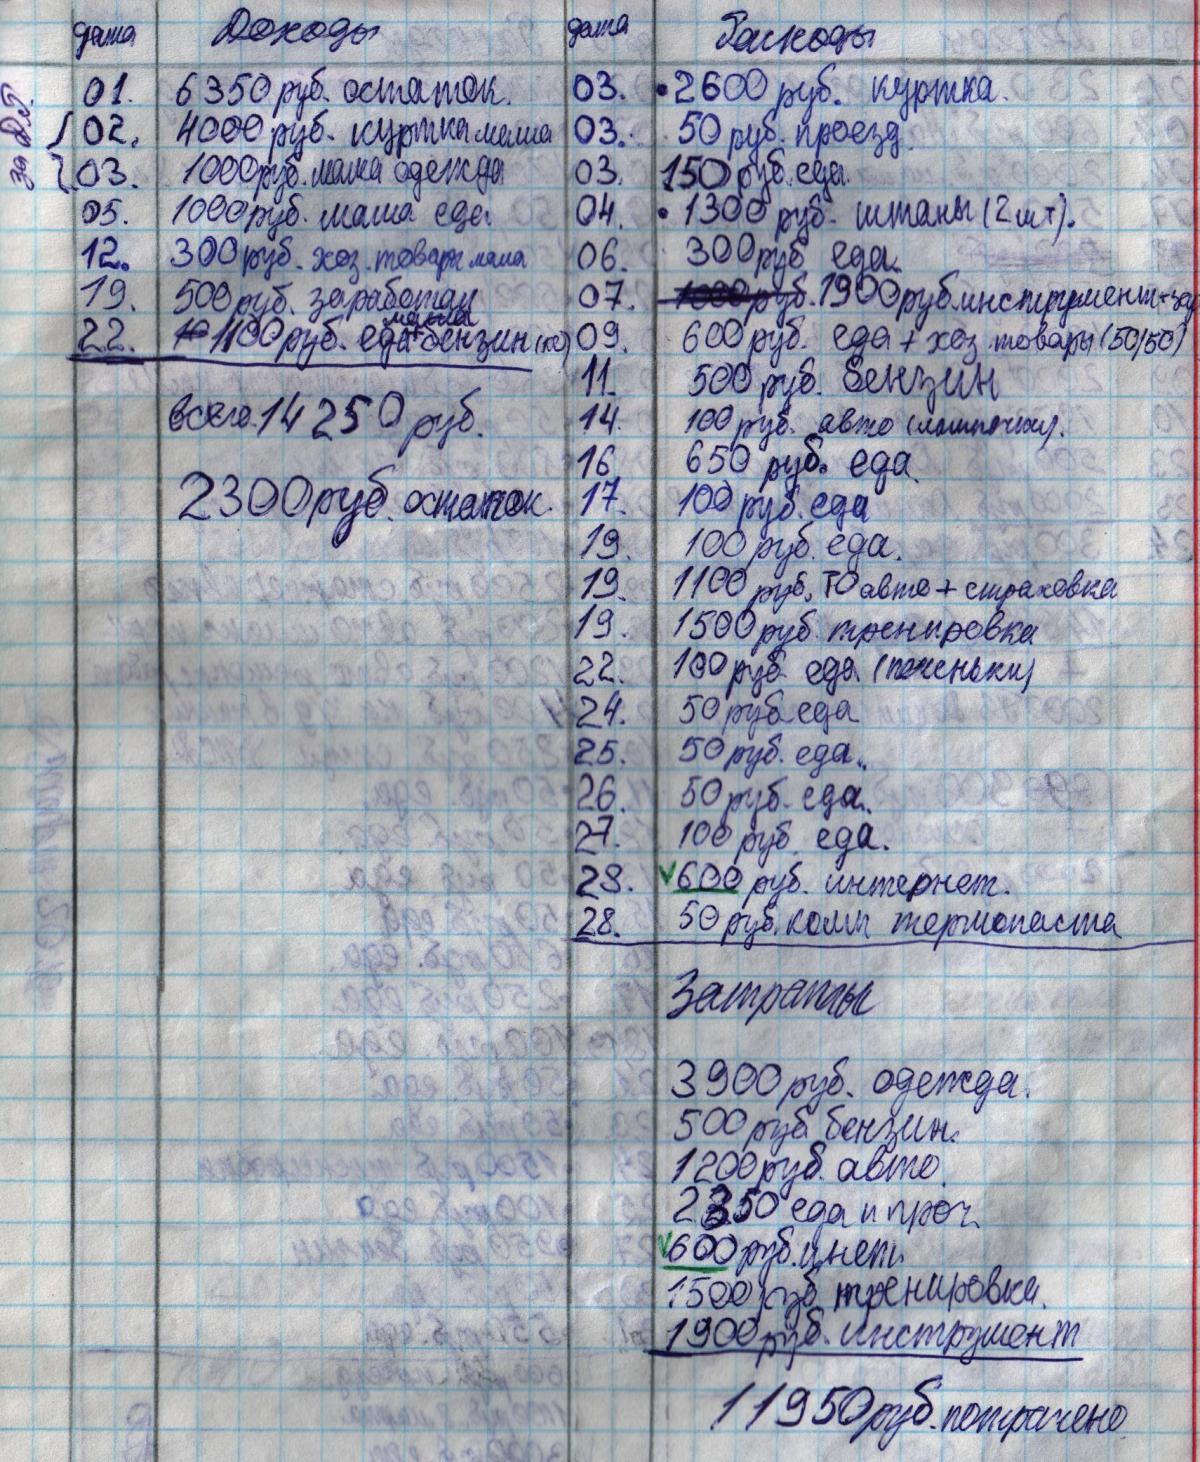 дата Доходы
01. 6350 руб. остаток.
02. 4000 руб. куртка мама
03. 1000 руб. мама одежда
05. 1000 руб. мама еда
12. 300 руб. хоз. товары мама
19. 500 руб. заработал
мама
22. 1100 руб. еда + бензин
всего 14250 руб.
2300 руб. остаток.
дата Расходы
03. 2600 руб. куртка.
03. 50 руб. проезд.
03. 150 руб. еда.
04. 1300 руб. штаны (2 шт).
06. 300 руб еда.
07. 1000 руб. 1900 руб. инструмент +
09. 600 руб. еда + хоз товары (50/50)
11. 500 руб. бензин
14. 100 руб. авто (лампочки).
16. 650 руб. еда
17. 100 руб. еда
19. 100 руб. еда.
19. 1100 руб. ТО авто + страховка
19. 1500 руб. тренировка
22. 100 руб. еда (печеньки)
24. 50 руб еда
25. 50 руб. еда.
26. 50 руб. еда.
27. 100 руб. еда.
28. 600 руб. интернет.
28. 50 руб. комп термопаста
Затраты
3900 руб. одежда.
500 руб бензин.
1200 руб. авто.
2350 еда и проч
600 руб. инет.
1500 руб тренировка.
1900 руб. инструмент
11950 руб. потрачено